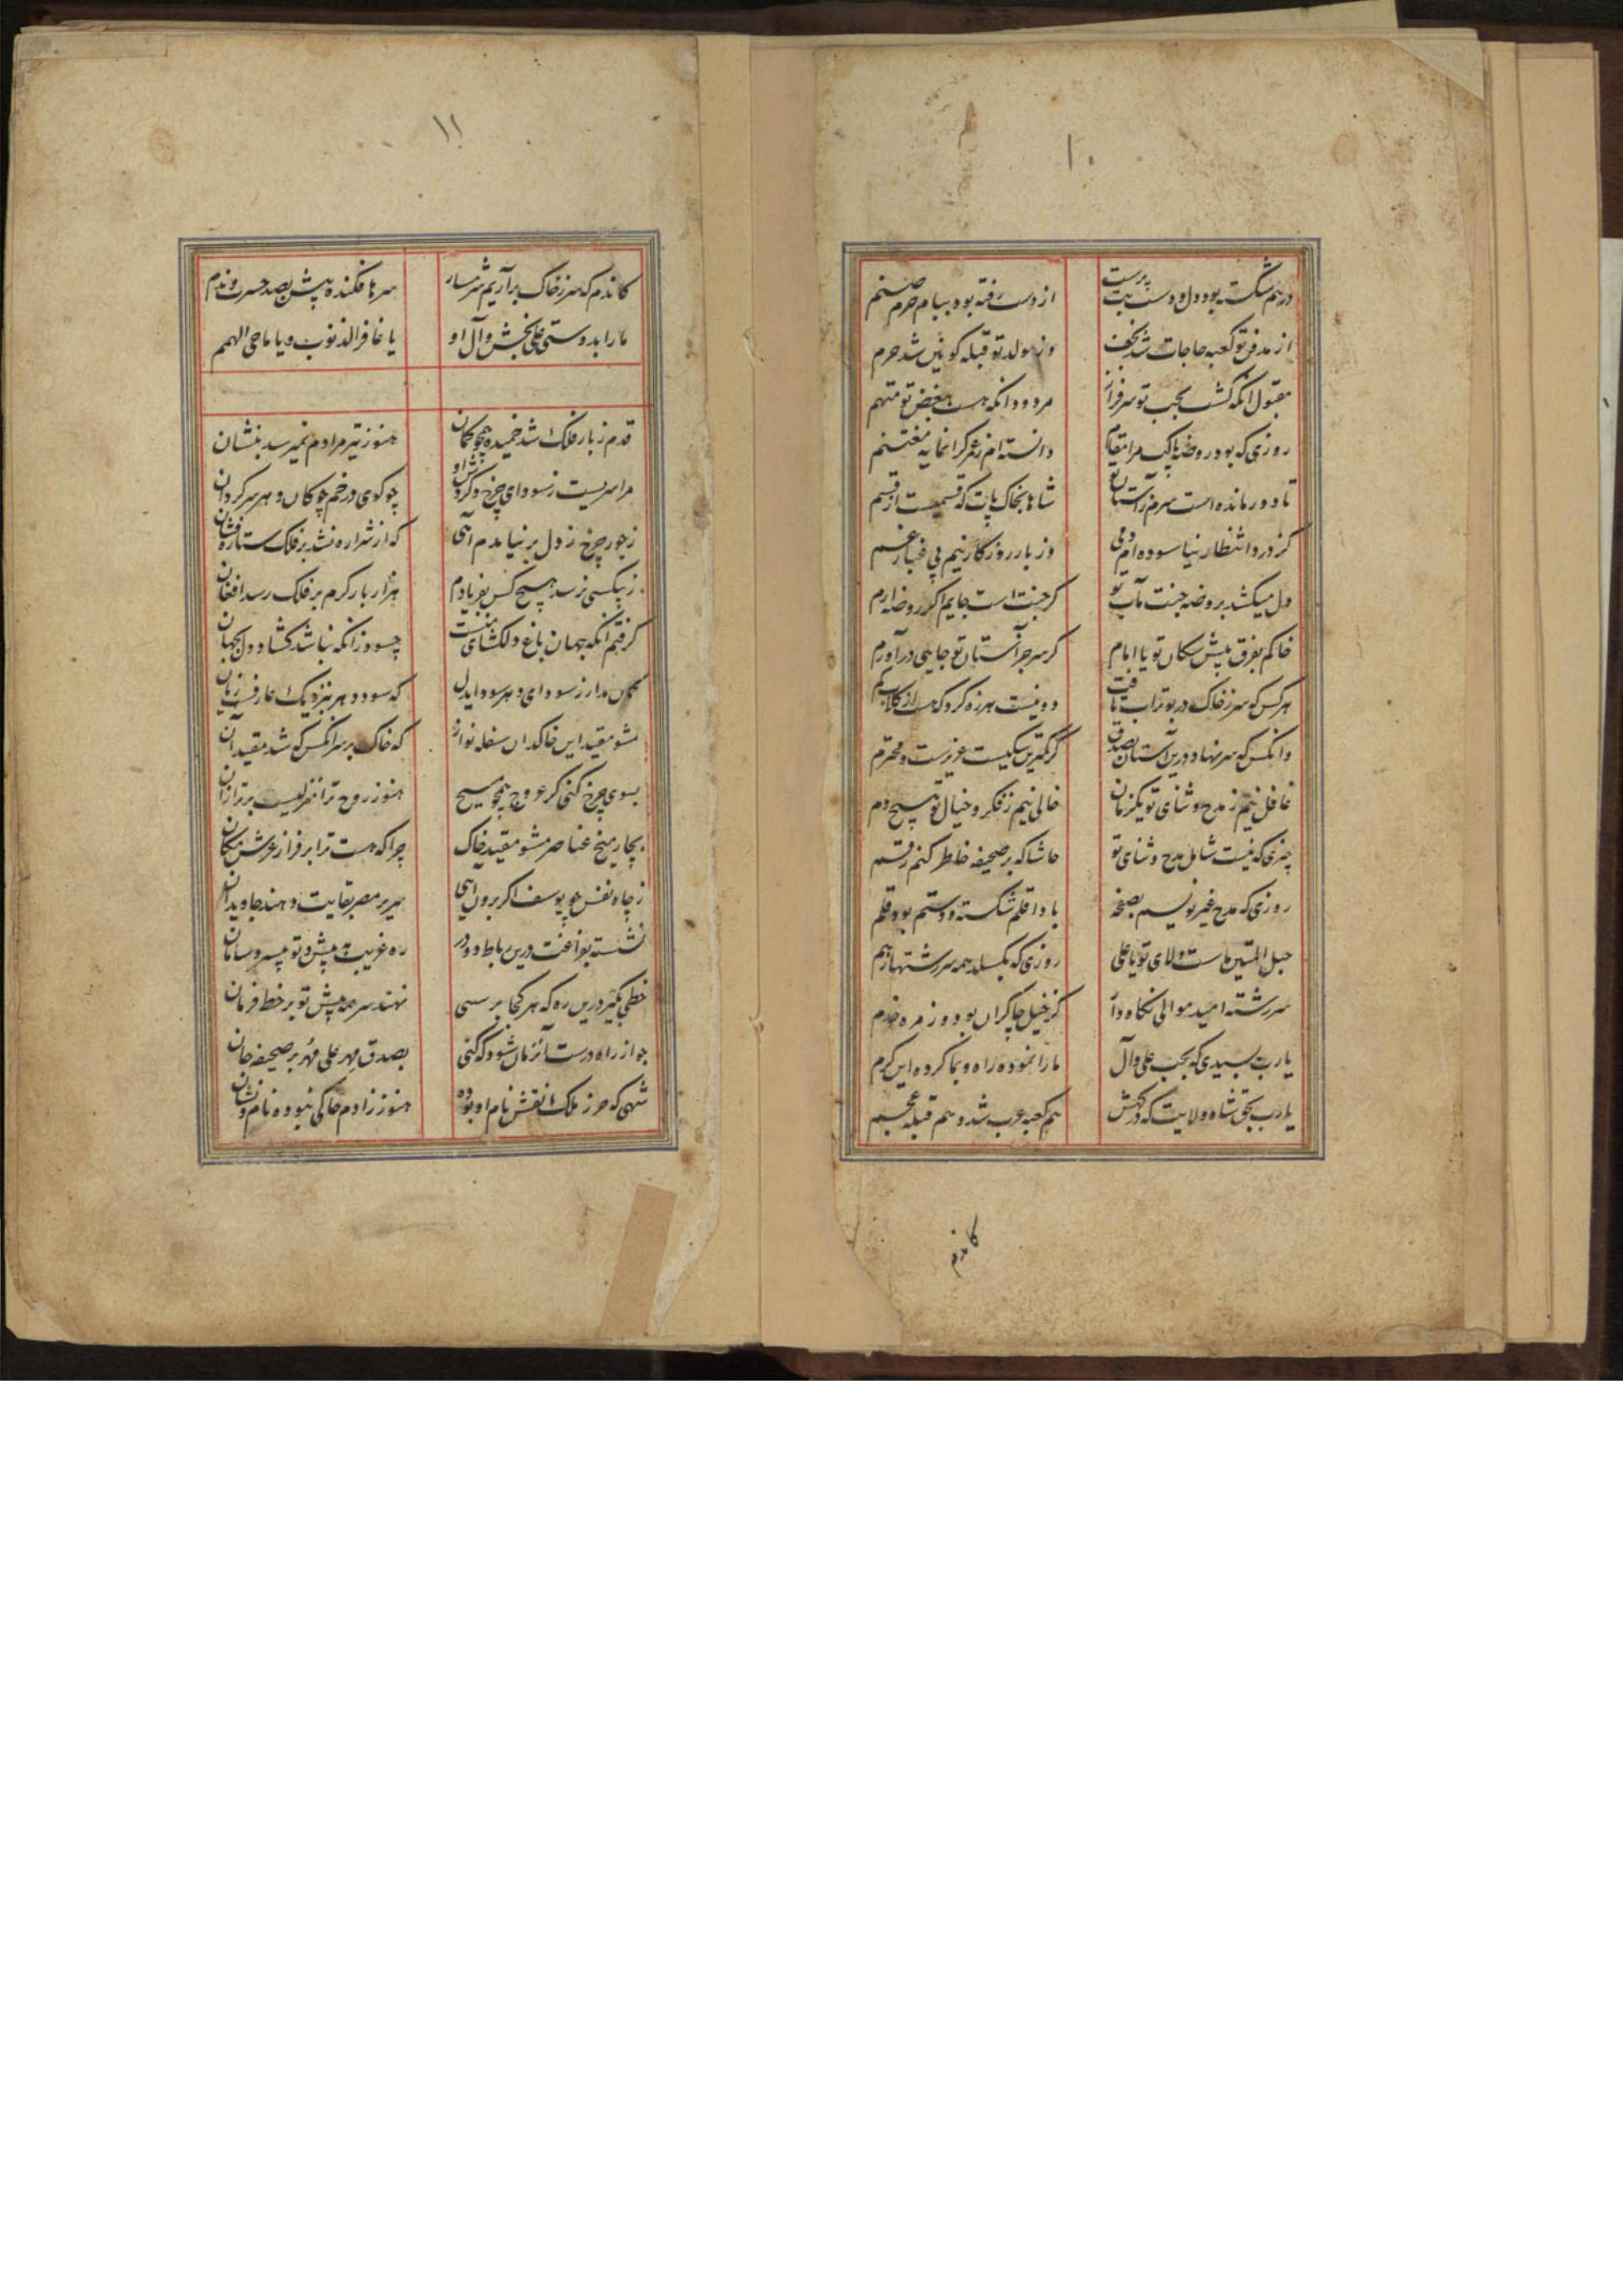 ۱۰
درهم شکسته بود دل و دست بت پرست از دست رفته بود ببام حرم صنم
از مدفن تو کعبه حاجات شد نجف وز مولد تو قبله کونین شد حرم
مقبول انکه کشت بحب تو سرفراز مردود انکه هست ببغض تو متهم
روزی که بود روضه پاکت مرا مقام دانسته ام ز عمر کرانمایه مغتنم
تا دور مانده است سرم ز آستان تو شاها بخاک پات که قسمیست از قسم
کز درد انتظار نیاسوده ام دمی وز بار روزکار نیم بی غبار غم
دل میکشد بروضه جنت مآب تو کر جنت است جایم اکر روضه ارم
خاکم بفرق پیش سکان تو یا امام کر سر جز آستان تو جایی درآورم
هرکس که سر ز خاک در بوتراب تافت
وانکس که سر نهاد درین آستان بصدق کر کمترین سکیست عزیزست و محترم
غافل نیم ز مدح و ثنای تو یکزمان خالی نیم ز فکر و خیال تو هیچ دم
چیزی که نیست شامل مدح و ثنای تو حاشا که بر صحیفه خاطر کنم رقم
روزی که مدح غیر نویسم بصفحه بادا قلم شکسته و دستم بود قلم
حبل المتین ماست ولای تو یا علی روزی که بکسلد همه سر رشتها ز هم
سر رشته امید موالی نکاه دار کز خیل چاکران بود و زمره خدم
یارب بسیدی که بحب علی و آل ما را نموده راه و بما کرده این کرم
یارب بحق شاه ولایت که درکهش هم کعبه عرب شد و هم قبله عجم
کاندم
۱۱
کاندم که سر ز خاک برآریم شرمسار سرها فکنده پیش بصد حسرت و ندم
ما را بدوستی علی بخش و آل او یا غافر الذنوب و یا ماحی الهمم
قدم ز بار فلک شد خمیده همچو کمان هنوز تیر مرادم نمیرسد بنشان
مرا سریست ز سودای چرخ و کردش او چو کوی در خم چوکان دهر سرکردان
ز جور چرخ ز دل بر نیامدم آهی که از شراره نشد بر فلک ستاره فشان
ز بیکسی نرسد هیچ کس بفریادم هزار بار کرم بر فلک رسد افغان
کرفتم آنکه جهان باغ دلکشای منست چسود زانکه نباشد کشاد دل بجهان
کمان مدار ز سودای دهر سود ایدل که سود دهر بنزدیک عارفست زیان
مشو مقید این خاکدان سفله نواز که خاک بر سر انکس که شد مقید آن
بسوی چرخ کنی کر عروج همچو مسیح هنوز روح ترا منزلیست برتر ازان
بچار میخ عناصر مشو مقید خاک چرا که هست ترا بر فراز عرش مکان
ز چاه نفس چو یوسف اکر برون آیی سریر مصر بقایت دهند جاویدان
نشسته بفراغت درین رباط دو در ره غریب به پیش و تو بیسر و سامان
خطی بکیر درین ره که هر کجا برسی نهند سر همه پیش تو بر خط فرمان
جواز راه درست آنزمان شود که کنی بصدق مهر علی مهر بر صحیفه جان
شهی که حرز ملک نقش نام او بوده هنوز ز ادم خاکی نبوده نام و نشان